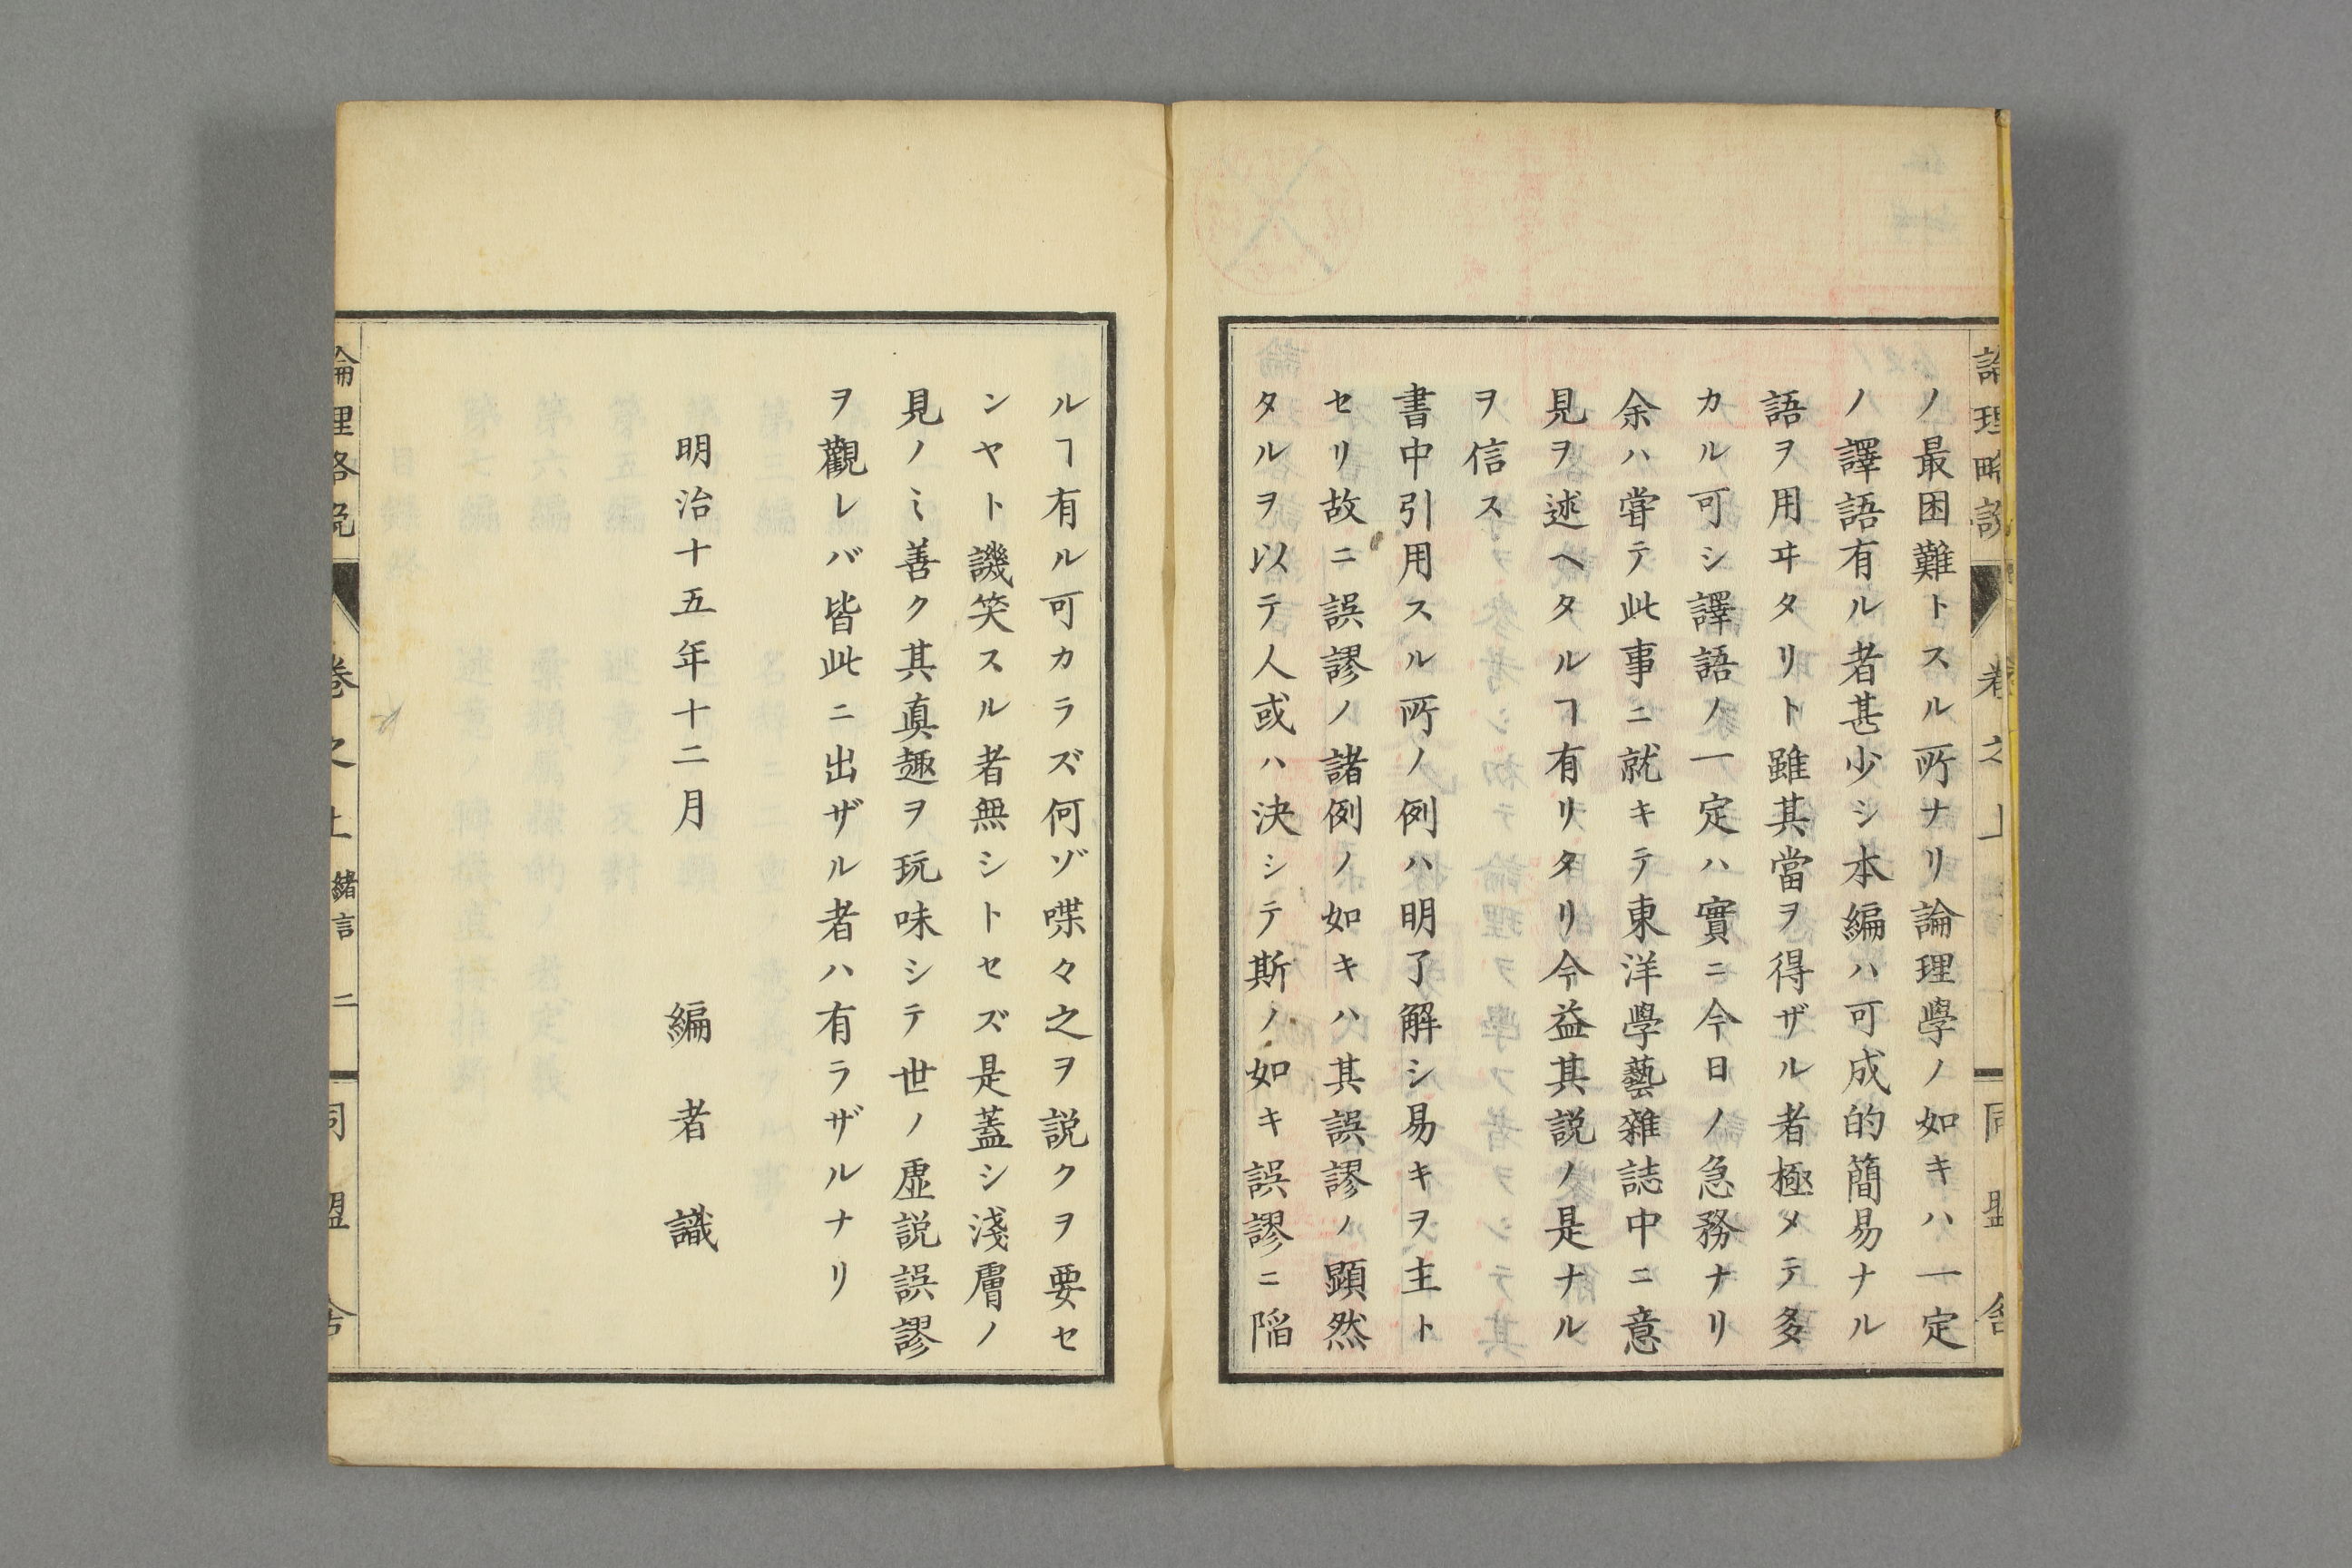 論理略説 卷之上 同盟舎
ノ最困難トスル所ナリ論理學ノ如キハ一定
ノ譯語有ル者甚少シ本編ハ可成的簡易ナル
語ヲ用ヰタリト雖其當ヲ得ザル者極メテ多
カル可シ譯語ノ一定ハ實ニ今日ノ急務ナリ
余ハ嘗テ此事ニ就キテ東洋學藝雜誌中ニ意
見ヲ述ヘタルヿ有リタリ今益其説ノ是ナル
ヲ信ス
書中引用スル所ノ例ハ明了解シ易キヲ主ト
セリ故ニ誤謬ノ諸例ノ如キハ其誤謬ノ顕然
タルヲ以テ人或ハ決シテ斯ノ如キ誤謬ニ陷
ルヿ有ル可カラズ何ゾ喋々之ヲ説クヲ要セ
ンヤト譏笑スル者無シトセズ是蓋シ淺膚ノ
見ノミ善ク其眞趣ヲ玩味シテ世ノ虛説誤謬
ヲ觀レバ皆此ニ出ザル者ハ有ラザルナリ
明治十五年十二月 編者識
論理略説 卷之上 緒言 二 同盟舎